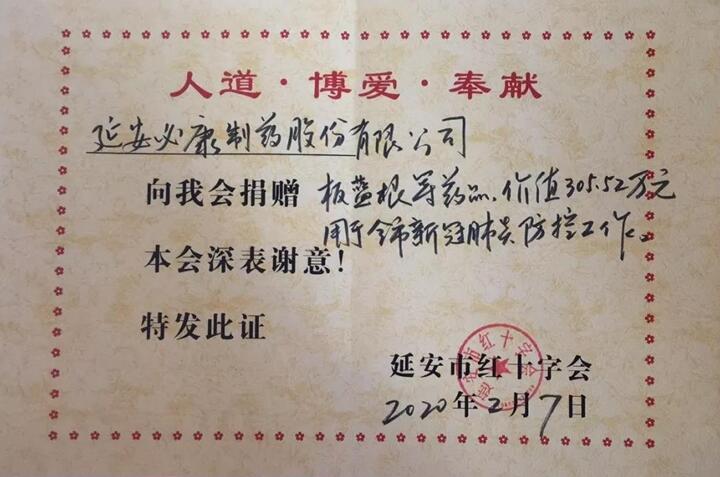 人道·博爱·奉献
延安必康制药股份有限公司
向我会捐赠 板蓝根等药品,价值305.52万元
用于全市新冠肺炎防控工作。
本会深表谢意!
特发此证
延安市红十字会
2020年2月7日
延安市红十字会